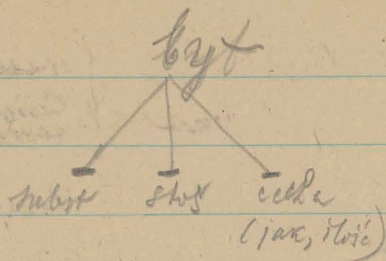 Byt
subst stos cecha
(jak, ilość)